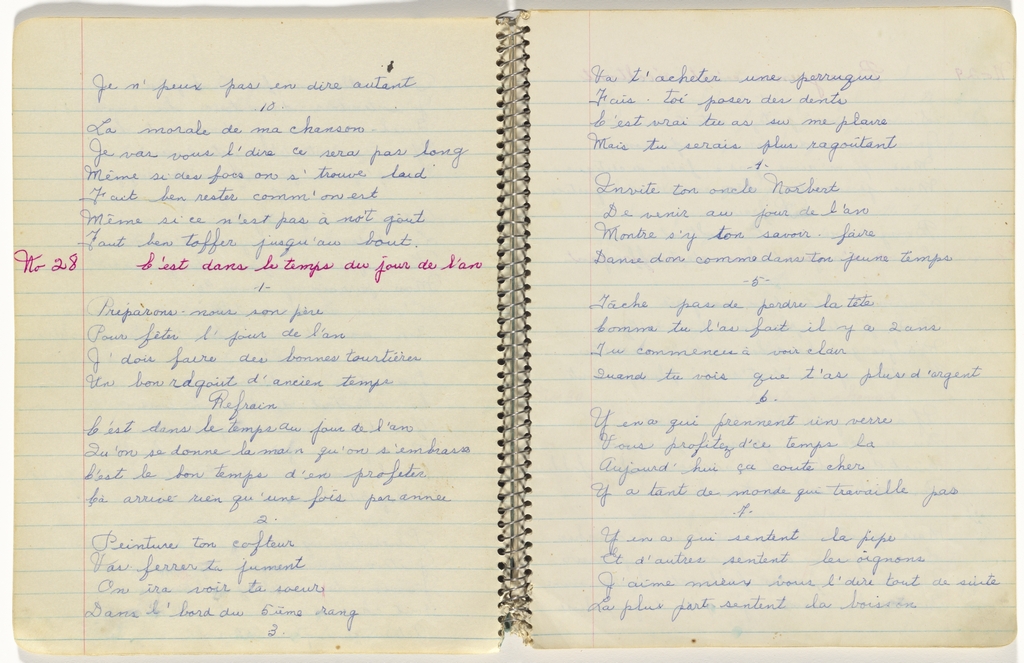 Je n' peux pas en dire autant
10.
La morale de ma chanson
Je vas vous l'dire ce sera pas long
Même si des foos on s' trouve laid
Faut ben rester comm' on est
Même si ce n'est pas à not goût
Faut ben toffer jusqu'au bout.
No 28 C'est dans le temps du jour de l'an
-1-
Préparons-nous son père
Pour fêter l' jour de l'an
J' dois faire des bonnes tourtières
Un bon ragoût d'ancien temps
Refrain
C'est dans le temps du jour de l'an
Qu'on se donne la main qu'on s'embrasse
C'est le bon temps d'en profiter
Ça arrive rien qu'une fois par année
2.
Peinture ton cofteur
Vas ferrer ta jument
On ira voir ta soeur
Dans l' bord du 5ième rang
3.
Va t'acheter une perruque
Fais-toi poser des dents
C'est vrai tu as su me plaire
Mais tu serais plus ragoûtant
-4-
Invite ton oncle Norbert
De venir au jour de l'an
Montre s'y ton savoir-faire
Danse don comme dans ton jeune temps
-5-
Tâche pas de perdre la tête
Comme tu l'as fait il y a 2 ans
Tu commences à voir clair
Quand tu vois que t'as plus d'argent
6.
Y en a qui prennent un verre
Vous profitez d'ce temps la
Aujourd'hui ça coute cher
Y a tant de monde qui travaille pas
-7-
Y en a qui sentent la pipe
Et d'autres sentent les oignons
J'aime mieux vous l'dire tout de suite
La plus part sentent la boisson